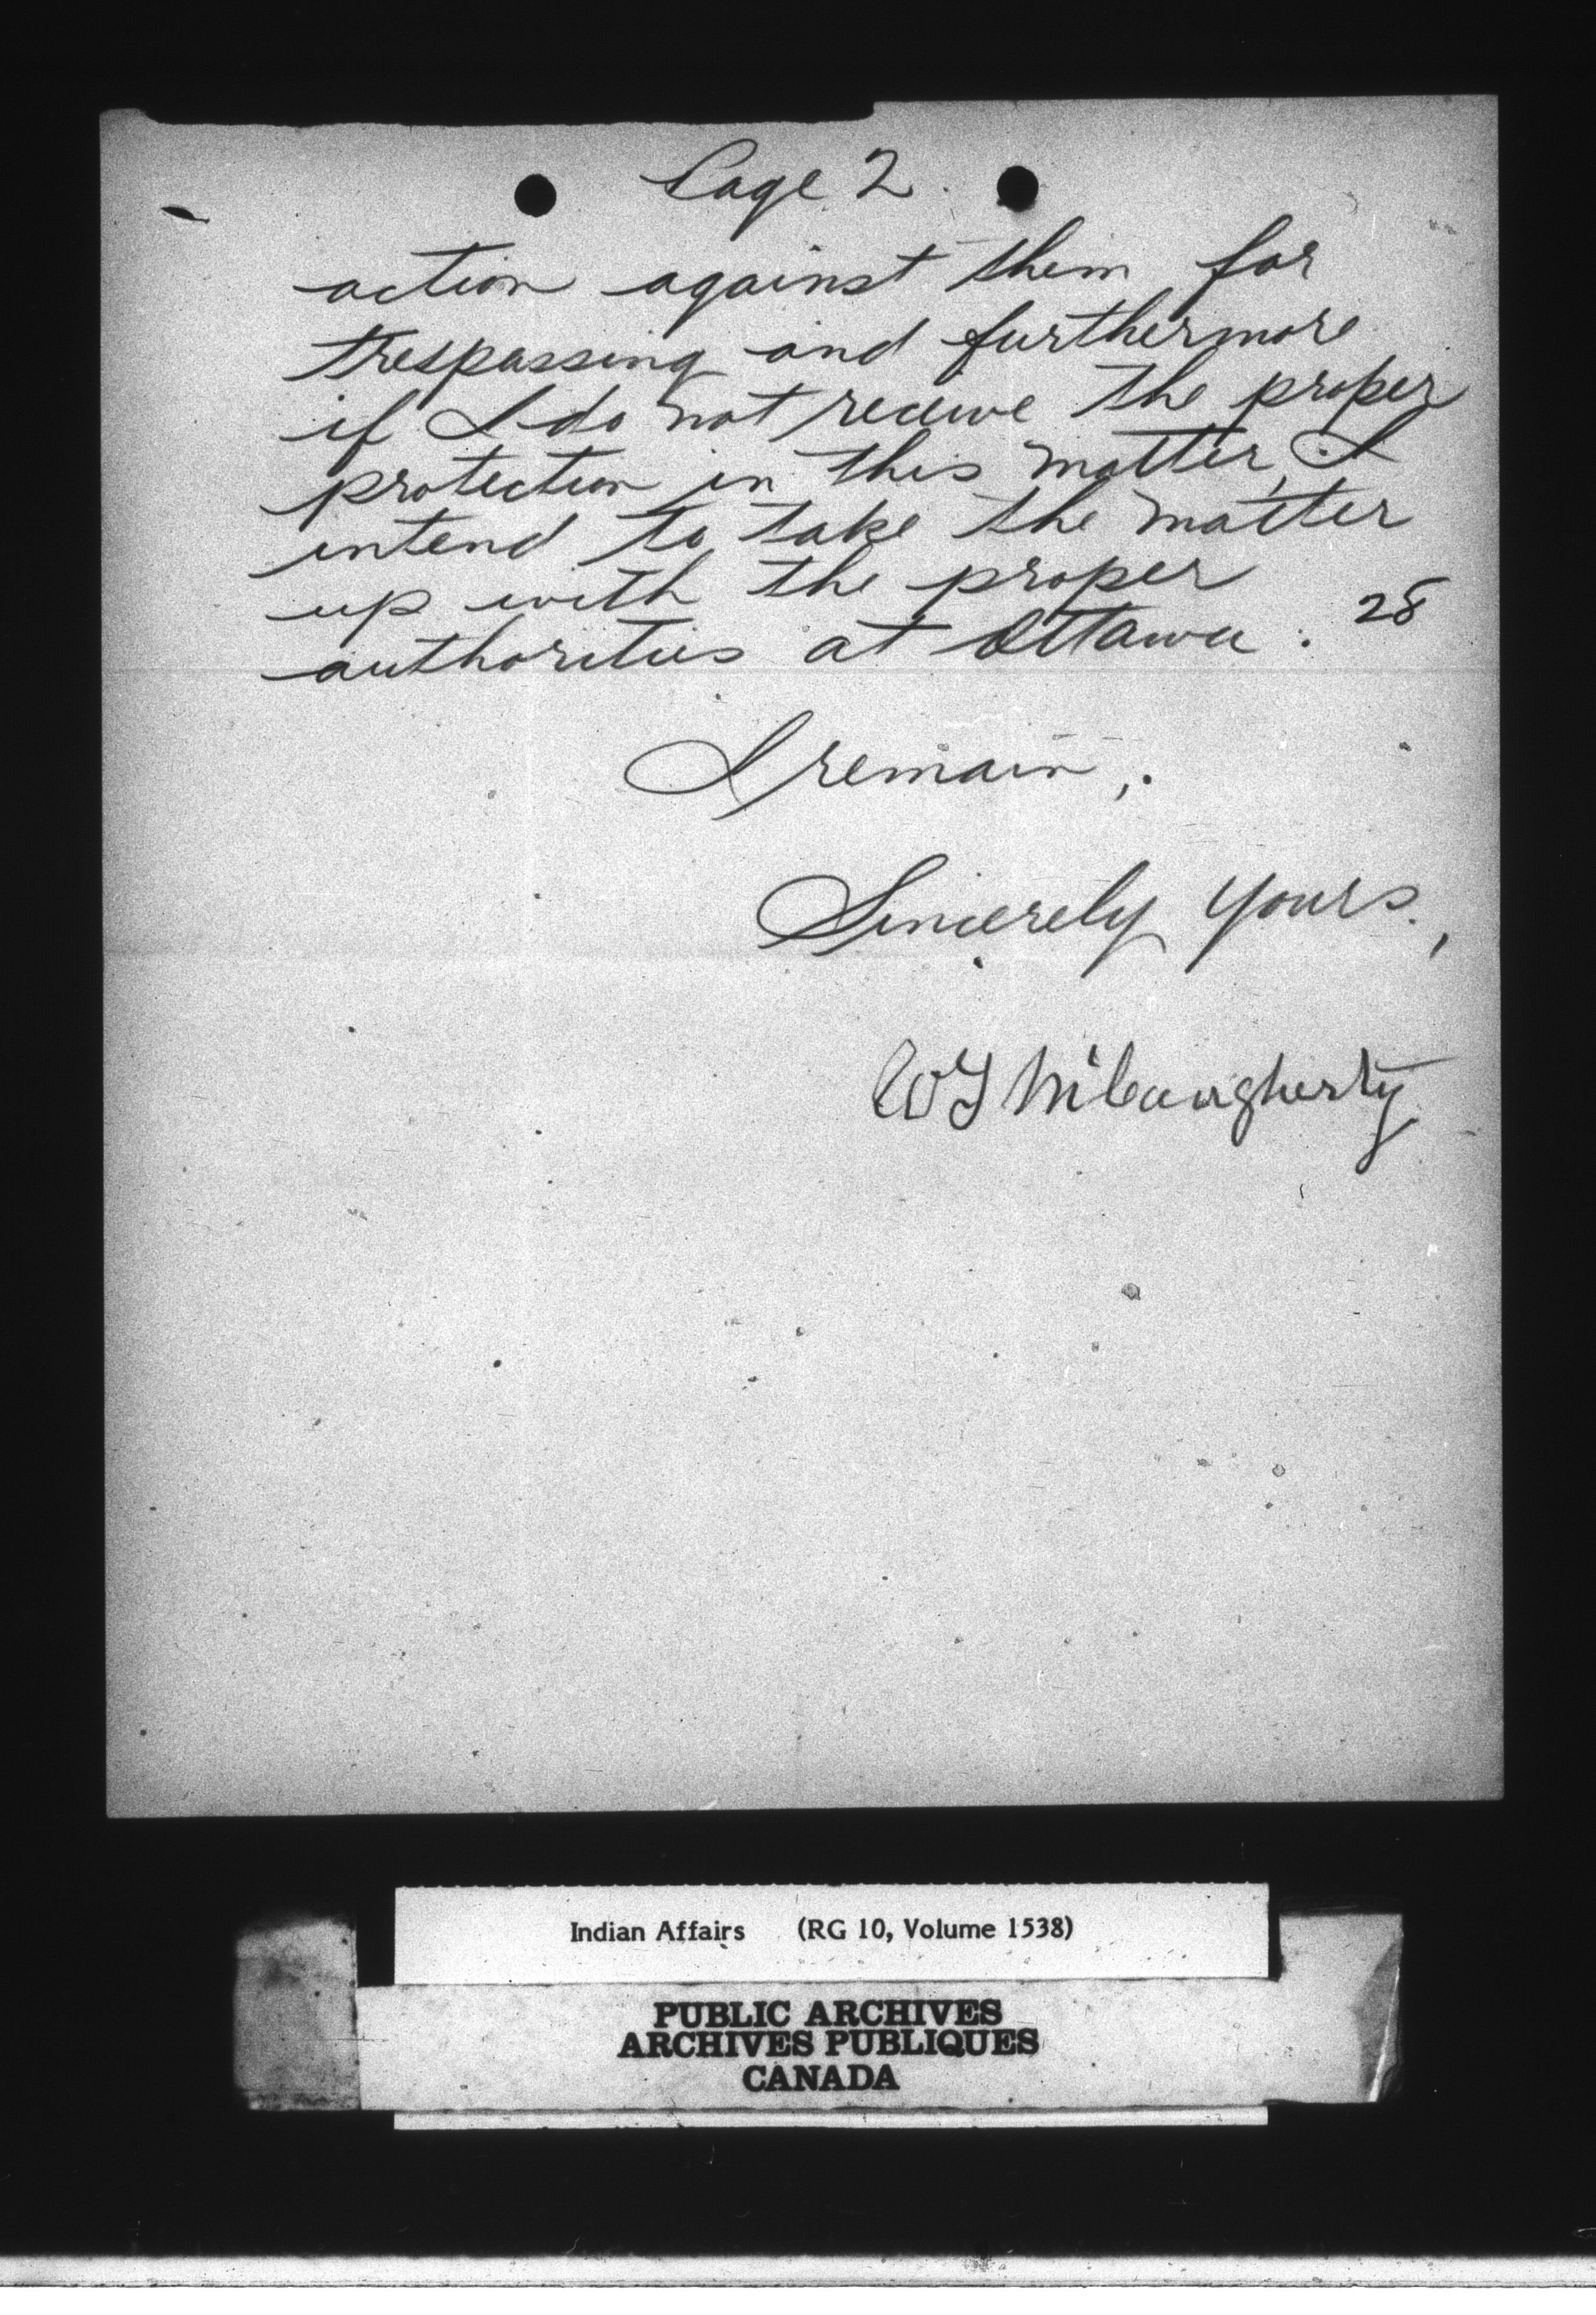 Page 2.
action against them for
trespassing and furthermore
if I do not receive the proper
protection in this matter, I
intend to take the matter
up with the proper
authorities at Ottawa. 28
I remain,
Sincerely yours,
Indian Affairs (RG 10, Volume 1538)
PUBLIC ARCHIVES
ARCHIVES PUBLIQUES
CANADA